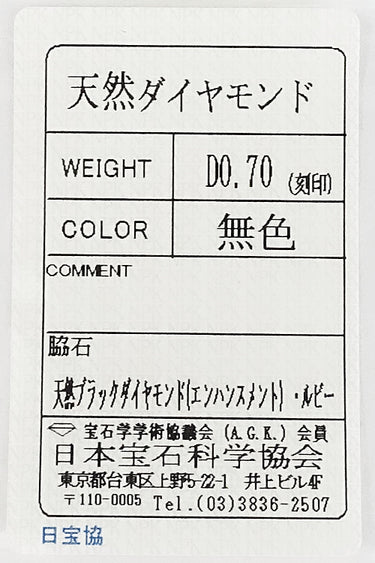 天然ダイヤモンド
WEIGHT D0.70 (刻印)
COLOR 無色
COMMENT
脇石
天然ブラックダイヤモンド(エンハンスメント)・ルビー
宝石学学術協議会 (A.G.K.) 会員
日本宝石科学協会
東京都台東区上野5-22-1 井上ビル4F
〒110-0005 Tel.(03)3836-2507
日宝協